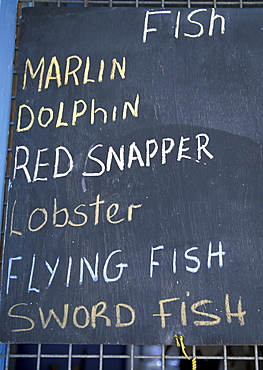 FISh
MARLIN
DOLPhiN
RED SNAPPER
Lobster
FLYING FISH
SWORD FiSH